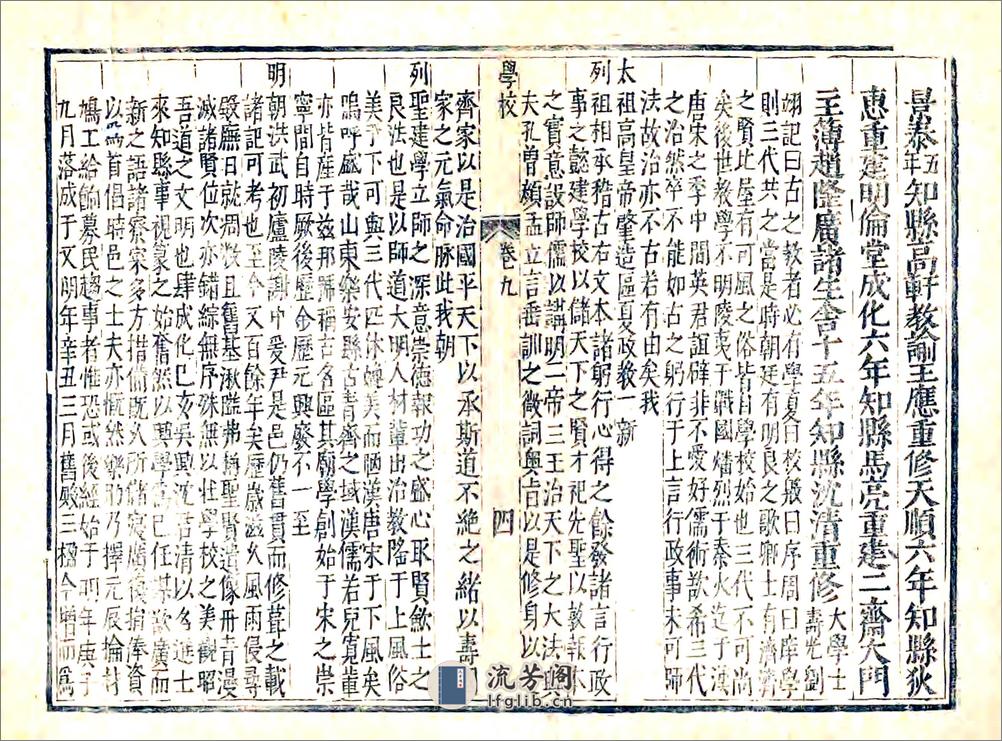 景泰五年知縣高軒教諭王應重修天順六年知縣狄
惠重建明倫堂成化六年知縣馬亮重建二齋大門
主簿趙隆廣諸生舍十五年知縣沈清重修大學士壽光劉
翊記曰古之教者必有學夏曰校殷曰序周曰庠學
則三代共之當是時朝廷有明良之歌鄉士有濟濟
之賢比屋有可風之俗皆自學校始也三代不可尚
矣後世教學不明陵夷于戰國燔烈于秦火迄于
唐宋之季中間英君誼辟非不愛好儒術欲希三代
之治然卒不能如古之躬行于上言行政事未可師
法故治亦不古若有由矣我
太祖高皇帝肇造區夏政教一新
列祖相承稽古右文本諸躬行心得之餘發諸言行政
事之懿建學校以儲天下之賢才祀先聖以敦報本
之實意設師儒以講明二帝三王治天下之大法與
夫孔曾顏孟立言垂訓之微詞奧旨以是修身以
學校
卷九
四
齊家以是治國平天下以承斯道不絶之緒以壽國
家之元氣命脉此我朝
列聖建學立師之深意崇德報功之盛心取賢斂士之
良法也是以師道大明人材輩出治教隆于上風俗
美于下可與三代匹休媲美而陋漢唐宋于下風矣
嗚呼盛哉山東樂安縣古青齊之域漢儒若兒寬董
亦皆産于兹那歸稱古名區其廟學創始于宋之崇
寧間自時厥後歷金歷元興廢不一至
明朝洪武初廬陵謝中爰尹是邑仍舊貫而修葺之載
諸記可考也至今又百餘年矣歷歲滋久風雨侵尋
殿廡日就凋敝且舊基湫隘弗稱聖賢遺像冊青漫
滅諸賢位次亦錯綜無序殊無以壮學校之美觀昭
吾道之文明也肆成化己亥吳興沈君清以名進士
來知縣事視篆之始奮然以興學為己任謀欲廣而
新之語諸寮寀多方措備既久所儲寖廣後捐俸資
以為首倡時邑之士夫亦慨然樂助乃擇元辰掄材
鳩工給餉募民趨事者惟恐或後經始于明年庚子
九月落成于又明年辛丑三月舊殿三楹今增而為
流芳閣
lfglib.cn